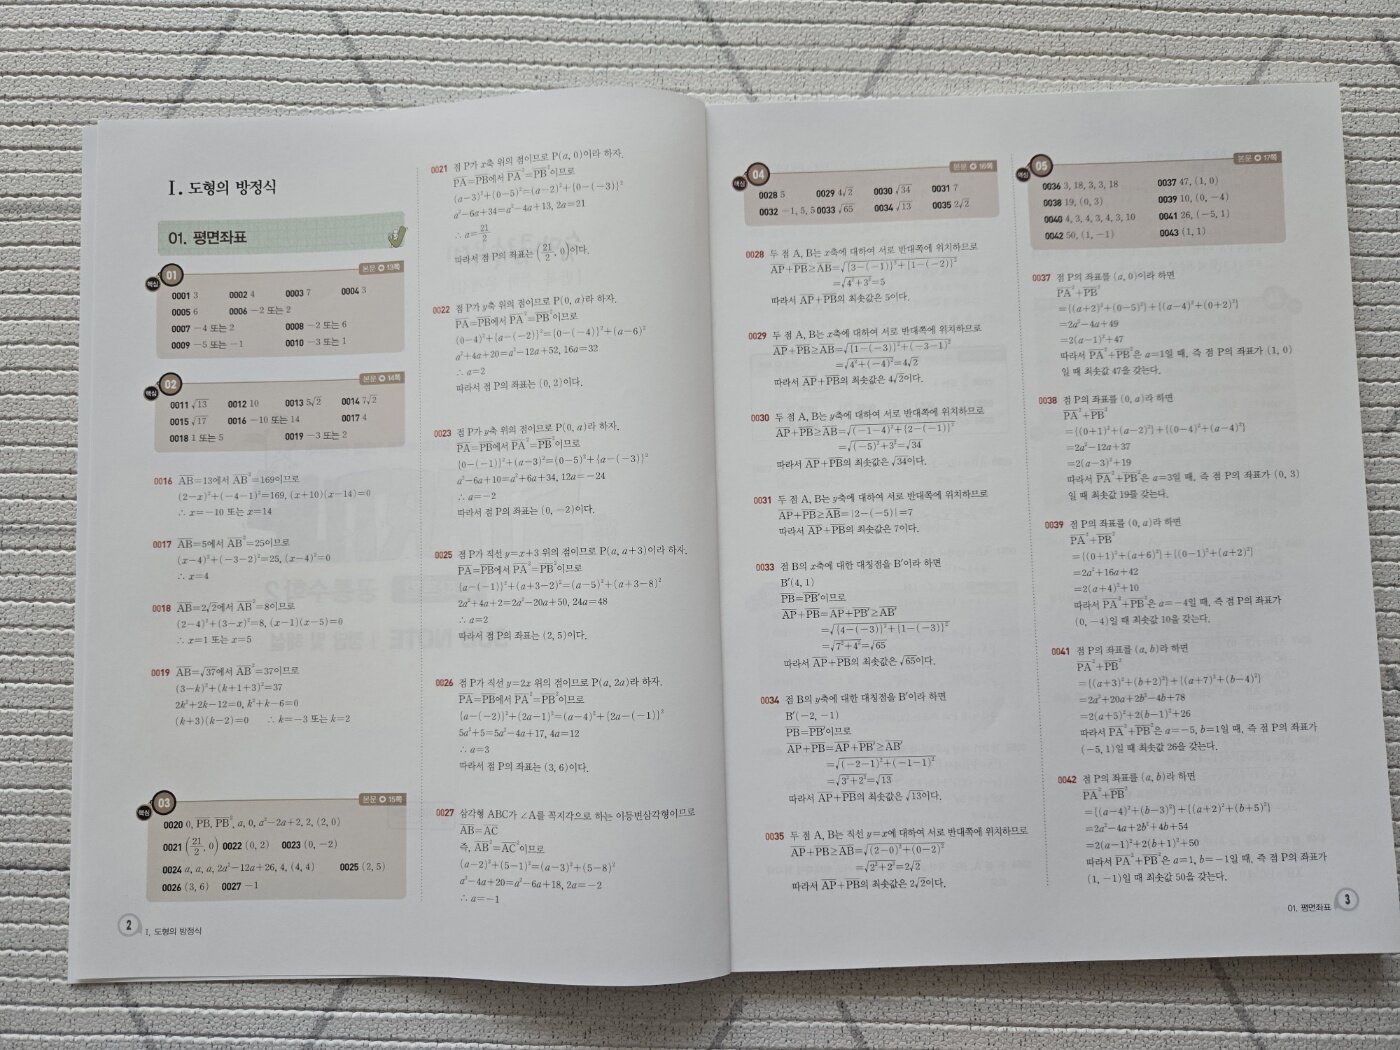 I. 도형의 방정식
01. 평면좌표
핵심 01 본문 13쪽
0001 3 0002 4 0003 7 0004 3
0005 6 0006 −2 또는 2
0007 −4 또는 2 0008 −2 또는 6
0009 −5 또는 −1 0010 −3 또는 1
핵심 02 본문 14쪽
0011 √13 0012 10 0013 5√2 0014 7√2
0015 √17 0016 −10 또는 14 0017 4
0018 1 또는 5 0019 −3 또는 2
0016 AB=13에서 AB²=169이므로
(2−x)²+(−4−1)²=169, (x+10)(x−14)=0
∴ x=−10 또는 x=14
0017 AB=5에서 AB²=25이므로
(x−4)²+(−3−2)²=25, (x−4)²=0
∴ x=4
0018 AB=2√2에서 AB²=8이므로
(2−4)²+(3−x)²=8, (x−1)(x−5)=0
∴ x=1 또는 x=5
0019 AB=√37에서 AB²=37이므로
(3−k)²+(k+1+3)²=37
2k²+2k−12=0, k²+k−6=0
(k+3)(k−2)=0 ∴ k=−3 또는 k=2
핵심 03 본문 15쪽
0020 0, PB, PB², a, 0, a²−2a+2, 2, (2, 0)
0021 (21/2, 0) 0022 (0, 2) 0023 (0, −2)
0024 a, a, a, 2a²−12a+26, 4, (4, 4) 0025 (2, 5)
0026 (3, 6) 0027 −1
2 I. 도형의 방정식
0021 점 P가 x축 위의 점이므로 P(a, 0)이라 하자.
PA=PB에서 PA²=PB²이므로
(a−3)²+(0−5)²=(a−2)²+{0−(−3)}²
a²−6a+34=a²−4a+13, 2a=21
∴ a=21/2
따라서 점 P의 좌표는 (21/2, 0)이다.
0022 점 P가 y축 위의 점이므로 P(0, a)라 하자.
PA=PB에서 PA²=PB²이므로
(0−4)²+{a−(−2)}²={0−(−4)}²+(a−6)²
a²+4a+20=a²−12a+52, 16a=32
∴ a=2
따라서 점 P의 좌표는 (0, 2)이다.
0023 점 P가 y축 위의 점이므로 P(0, a)라 하자.
PA=PB에서 PA²=PB²이므로
{0−(−1)}²+(a−3)²=(0−5)²+{a−(−3)}²
a²−6a+10=a²+6a+34, 12a=−24
∴ a=−2
따라서 점 P의 좌표는 (0, −2)이다.
0025 점 P가 직선 y=x+3 위의 점이므로 P(a, a+3)이라 하자.
PA=PB에서 PA²=PB²이므로
{a−(−1)}²+(a+3−2)²=(a−5)²+(a+3−8)²
2a²+4a+2=2a²−20a+50, 24a=48
∴ a=2
따라서 점 P의 좌표는 (2, 5)이다.
0026 점 P가 직선 y=2x 위의 점이므로 P(a, 2a)라 하자.
PA=PB에서 PA²=PB²이므로
{a−(−2)}²+(2a−1)²=(a−4)²+{2a−(−1)}²
5a²+5=5a²−4a+17, 4a=12
∴ a=3
따라서 점 P의 좌표는 (3, 6)이다.
0027 삼각형 ABC가 ∠A를 꼭지각으로 하는 이등변삼각형이므로
AB=AC
즉, AB²=AC²이므로
(a−2)²+(5−1)²=(a−3)²+(5−8)²
a²−4a+20=a²−6a+18, 2a=−2
∴ a=−1
핵심 04 본문 16쪽
0028 5 0029 4√2 0030 √34 0031 7
0032 −1, 5, 5 0033 √65 0034 √13 0035 2√2
0028 두 점 A, B는 x축에 대하여 서로 반대쪽에 위치하므로
AP+PB≥AB=√({3−(−1)}²+{1−(−2)}²)
=√(4²+3²)=5
따라서 AP+PB의 최솟값은 5이다.
0029 두 점 A, B는 x축에 대하여 서로 반대쪽에 위치하므로
AP+PB≥AB=√({1−(−3)}²+(−3−1)²)
=√(4²+(−4)²)=4√2
따라서 AP+PB의 최솟값은 4√2이다.
0030 두 점 A, B는 y축에 대하여 서로 반대쪽에 위치하므로
AP+PB≥AB=√((−1−4)²+{2−(−1)}²)
=√((−5)²+3²)=√34
따라서 AP+PB의 최솟값은 √34이다.
0031 두 점 A, B는 y축에 대하여 서로 반대쪽에 위치하므로
AP+PB≥AB=|2−(−5)|=7
따라서 AP+PB의 최솟값은 7이다.
0033 점 B의 x축에 대한 대칭점을 B′이라 하면
B′(4, 1)
PB=PB′이므로
AP+PB=AP+PB′≥AB′
=√({4−(−3)}²+{1−(−3)}²)
=√(7²+4²)=√65
따라서 AP+PB의 최솟값은 √65이다.
0034 점 B의 y축에 대한 대칭점을 B′이라 하면
B′(−2, −1)
PB=PB′이므로
AP+PB=AP+PB′≥AB′
=√((−2−1)²+(−1−1)²)
=√(3²+2²)=√13
따라서 AP+PB의 최솟값은 √13이다.
0035 두 점 A, B는 직선 y=x에 대하여 서로 반대쪽에 위치하므로
AP+PB≥AB=√((2−0)²+(0−2)²)
=√(2²+2²)=2√2
따라서 AP+PB의 최솟값은 2√2이다.
핵심 05 본문 17쪽
0036 3, 18, 3, 3, 18 0037 47, (1, 0)
0038 19, (0, 3) 0039 10, (0, −4)
0040 4, 3, 4, 3, 4, 3, 10 0041 26, (−5, 1)
0042 50, (1, −1) 0043 (1, 1)
0037 점 P의 좌표를 (a, 0)이라 하면
PA²+PB²
={(a+2)²+(0−5)²}+{(a−4)²+(0+2)²}
=2a²−4a+49
=2(a−1)²+47
따라서 PA²+PB²은 a=1일 때, 즉 점 P의 좌표가 (1, 0)
일 때 최솟값 47을 갖는다.
0038 점 P의 좌표를 (0, a)라 하면
PA²+PB²
={(0+1)²+(a−2)²}+{(0−4)²+(a−4)²}
=2a²−12a+37
=2(a−3)²+19
따라서 PA²+PB²은 a=3일 때, 즉 점 P의 좌표가 (0, 3)
일 때 최솟값 19를 갖는다.
0039 점 P의 좌표를 (0, a)라 하면
PA²+PB²
={(0+1)²+(a+6)²}+{(0−1)²+(a+2)²}
=2a²+16a+42
=2(a+4)²+10
따라서 PA²+PB²은 a=−4일 때, 즉 점 P의 좌표가
(0, −4)일 때 최솟값 10을 갖는다.
0041 점 P의 좌표를 (a, b)라 하면
PA²+PB²
={(a+3)²+(b+2)²}+{(a+7)²+(b−4)²}
=2a²+20a+2b²−4b+78
=2(a+5)²+2(b−1)²+26
따라서 PA²+PB²은 a=−5, b=1일 때, 즉 점 P의 좌표가
(−5, 1)일 때 최솟값 26을 갖는다.
0042 점 P의 좌표를 (a, b)라 하면
PA²+PB²
={(a−4)²+(b−3)²}+{(a+2)²+(b+5)²}
=2a²−4a+2b²+4b+54
=2(a−1)²+2(b+1)²+50
따라서 PA²+PB²은 a=1, b=−1일 때, 즉 점 P의 좌표가
(1, −1)일 때 최솟값 50을 갖는다.
01. 평면좌표 3